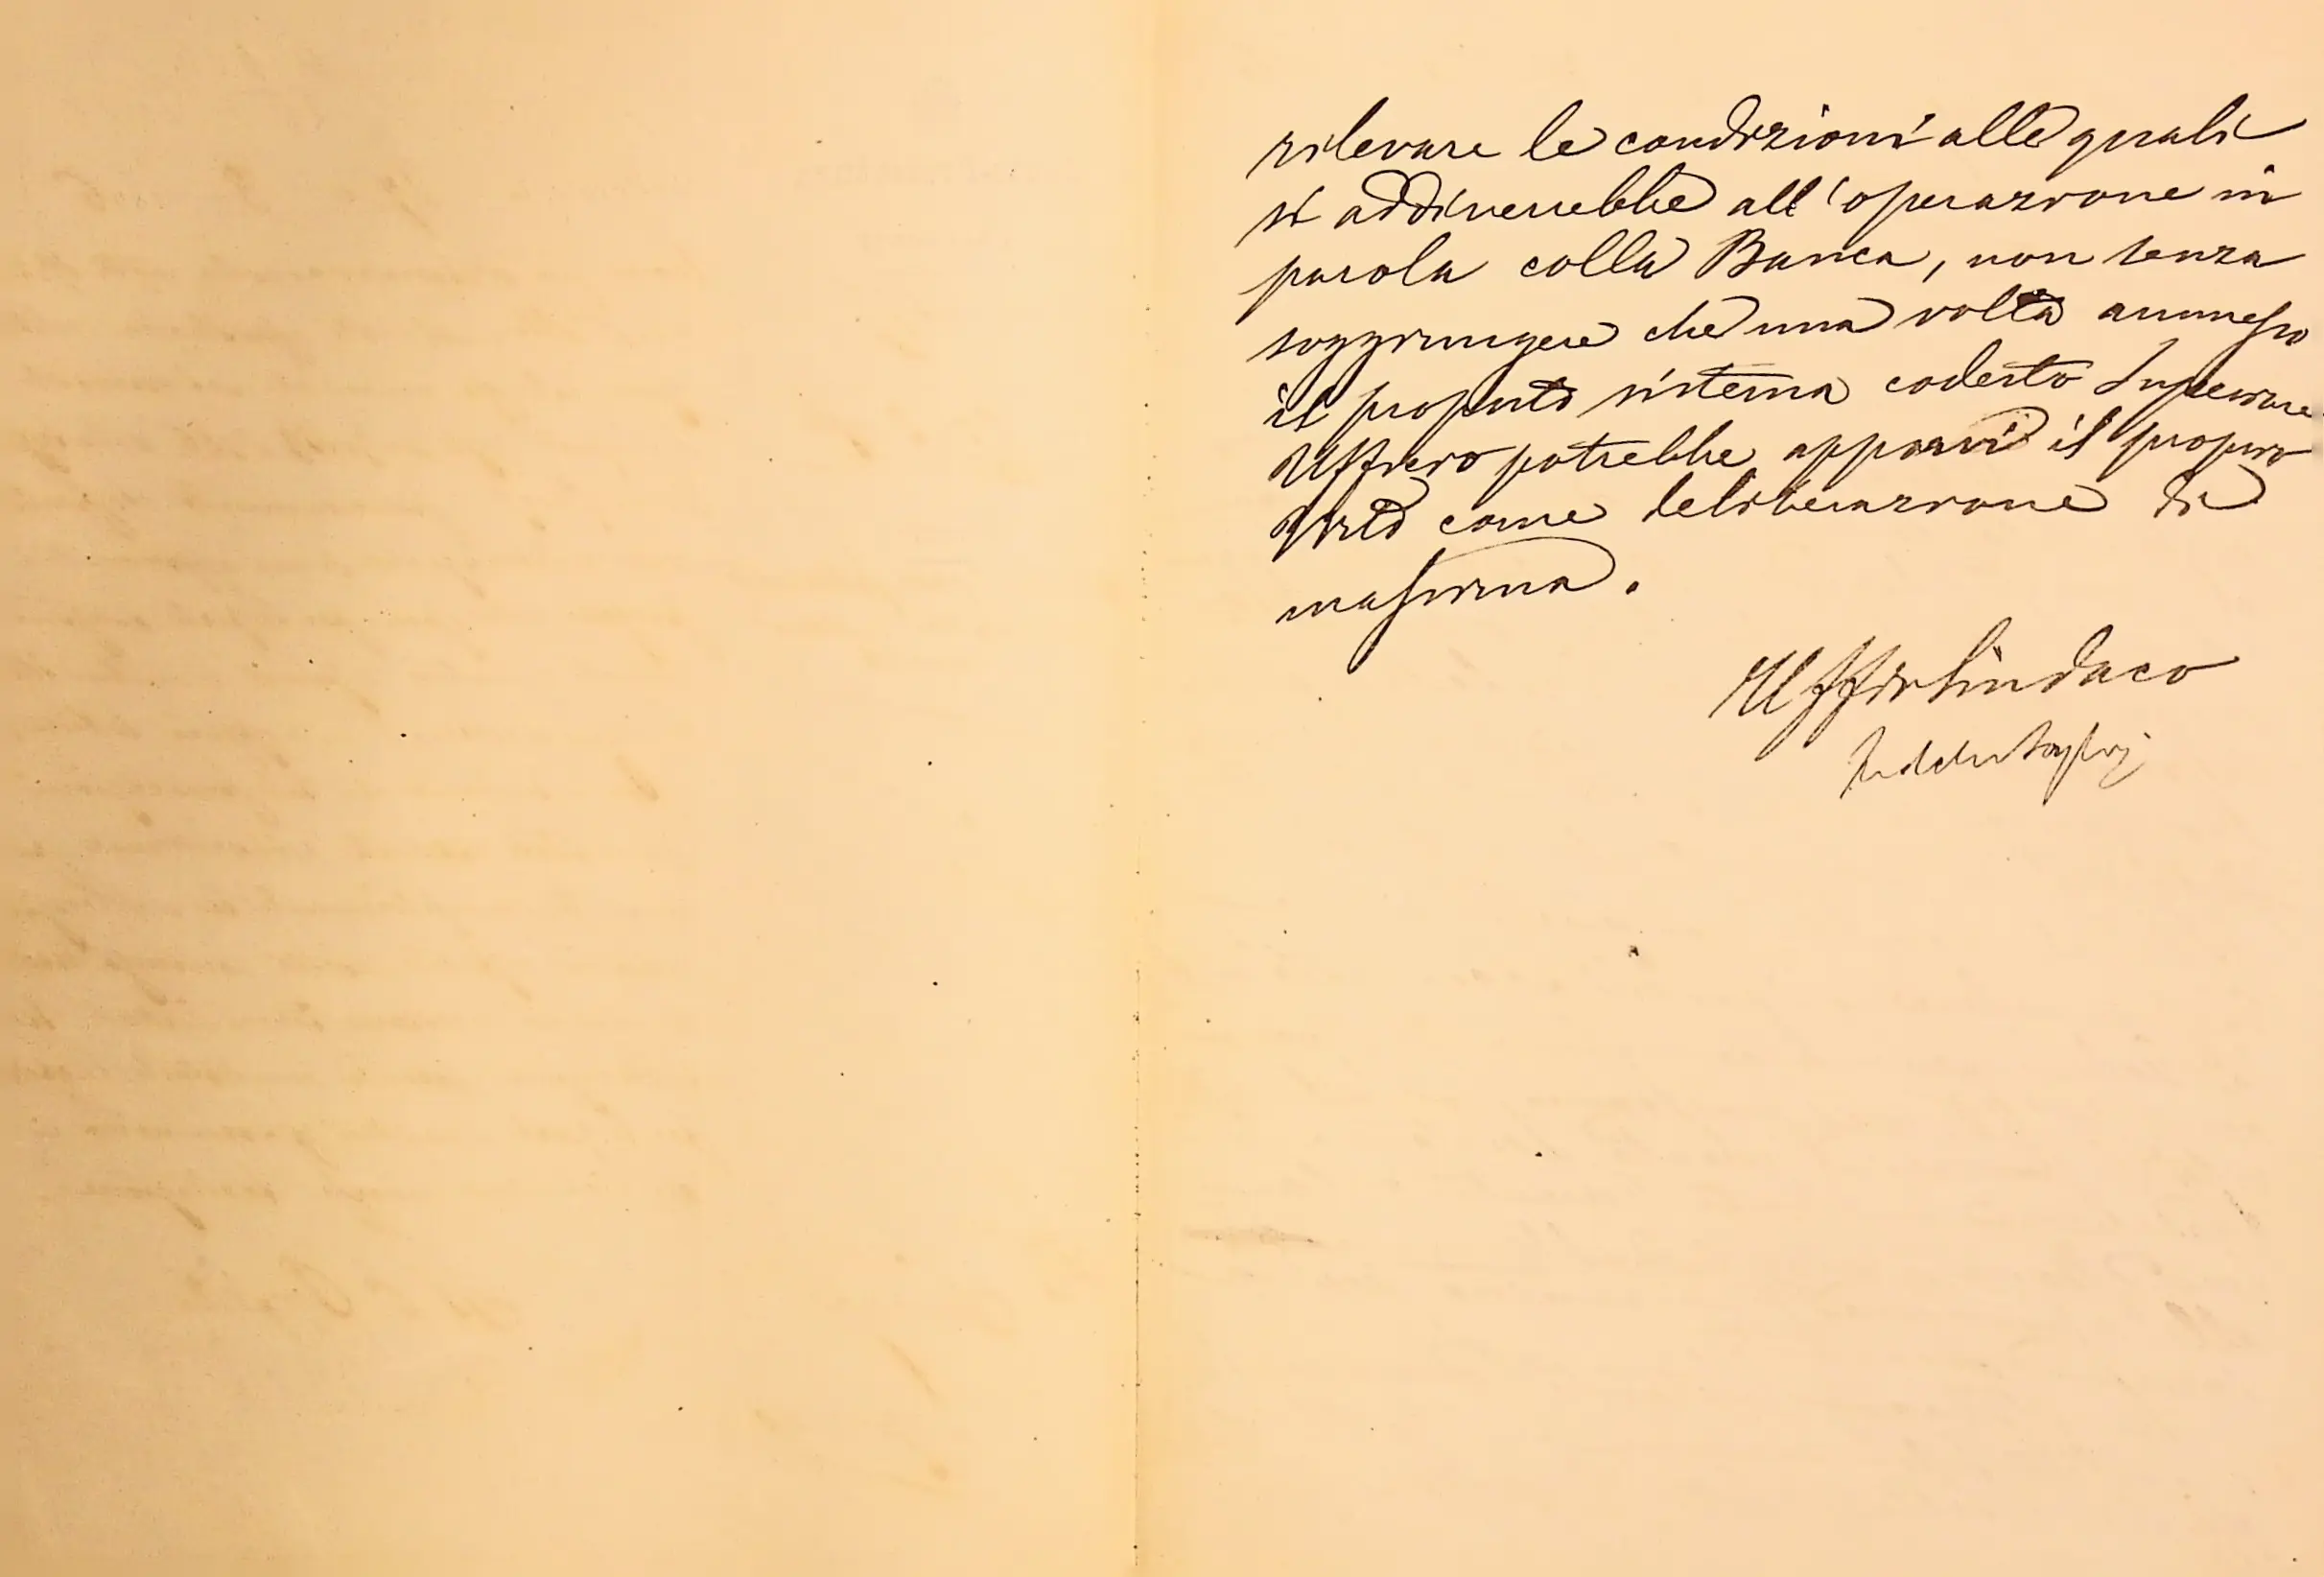 rilevare le condizioni alle quali
si addiverrebbe all'operazione in
parola colla Banca, non senza
soggiungere che una volta ammesso
il proposto sistema codesto Superiore
Ufficio potrebbe apporvi il proprio
Visto come deliberazione di
massima.
Sindaco